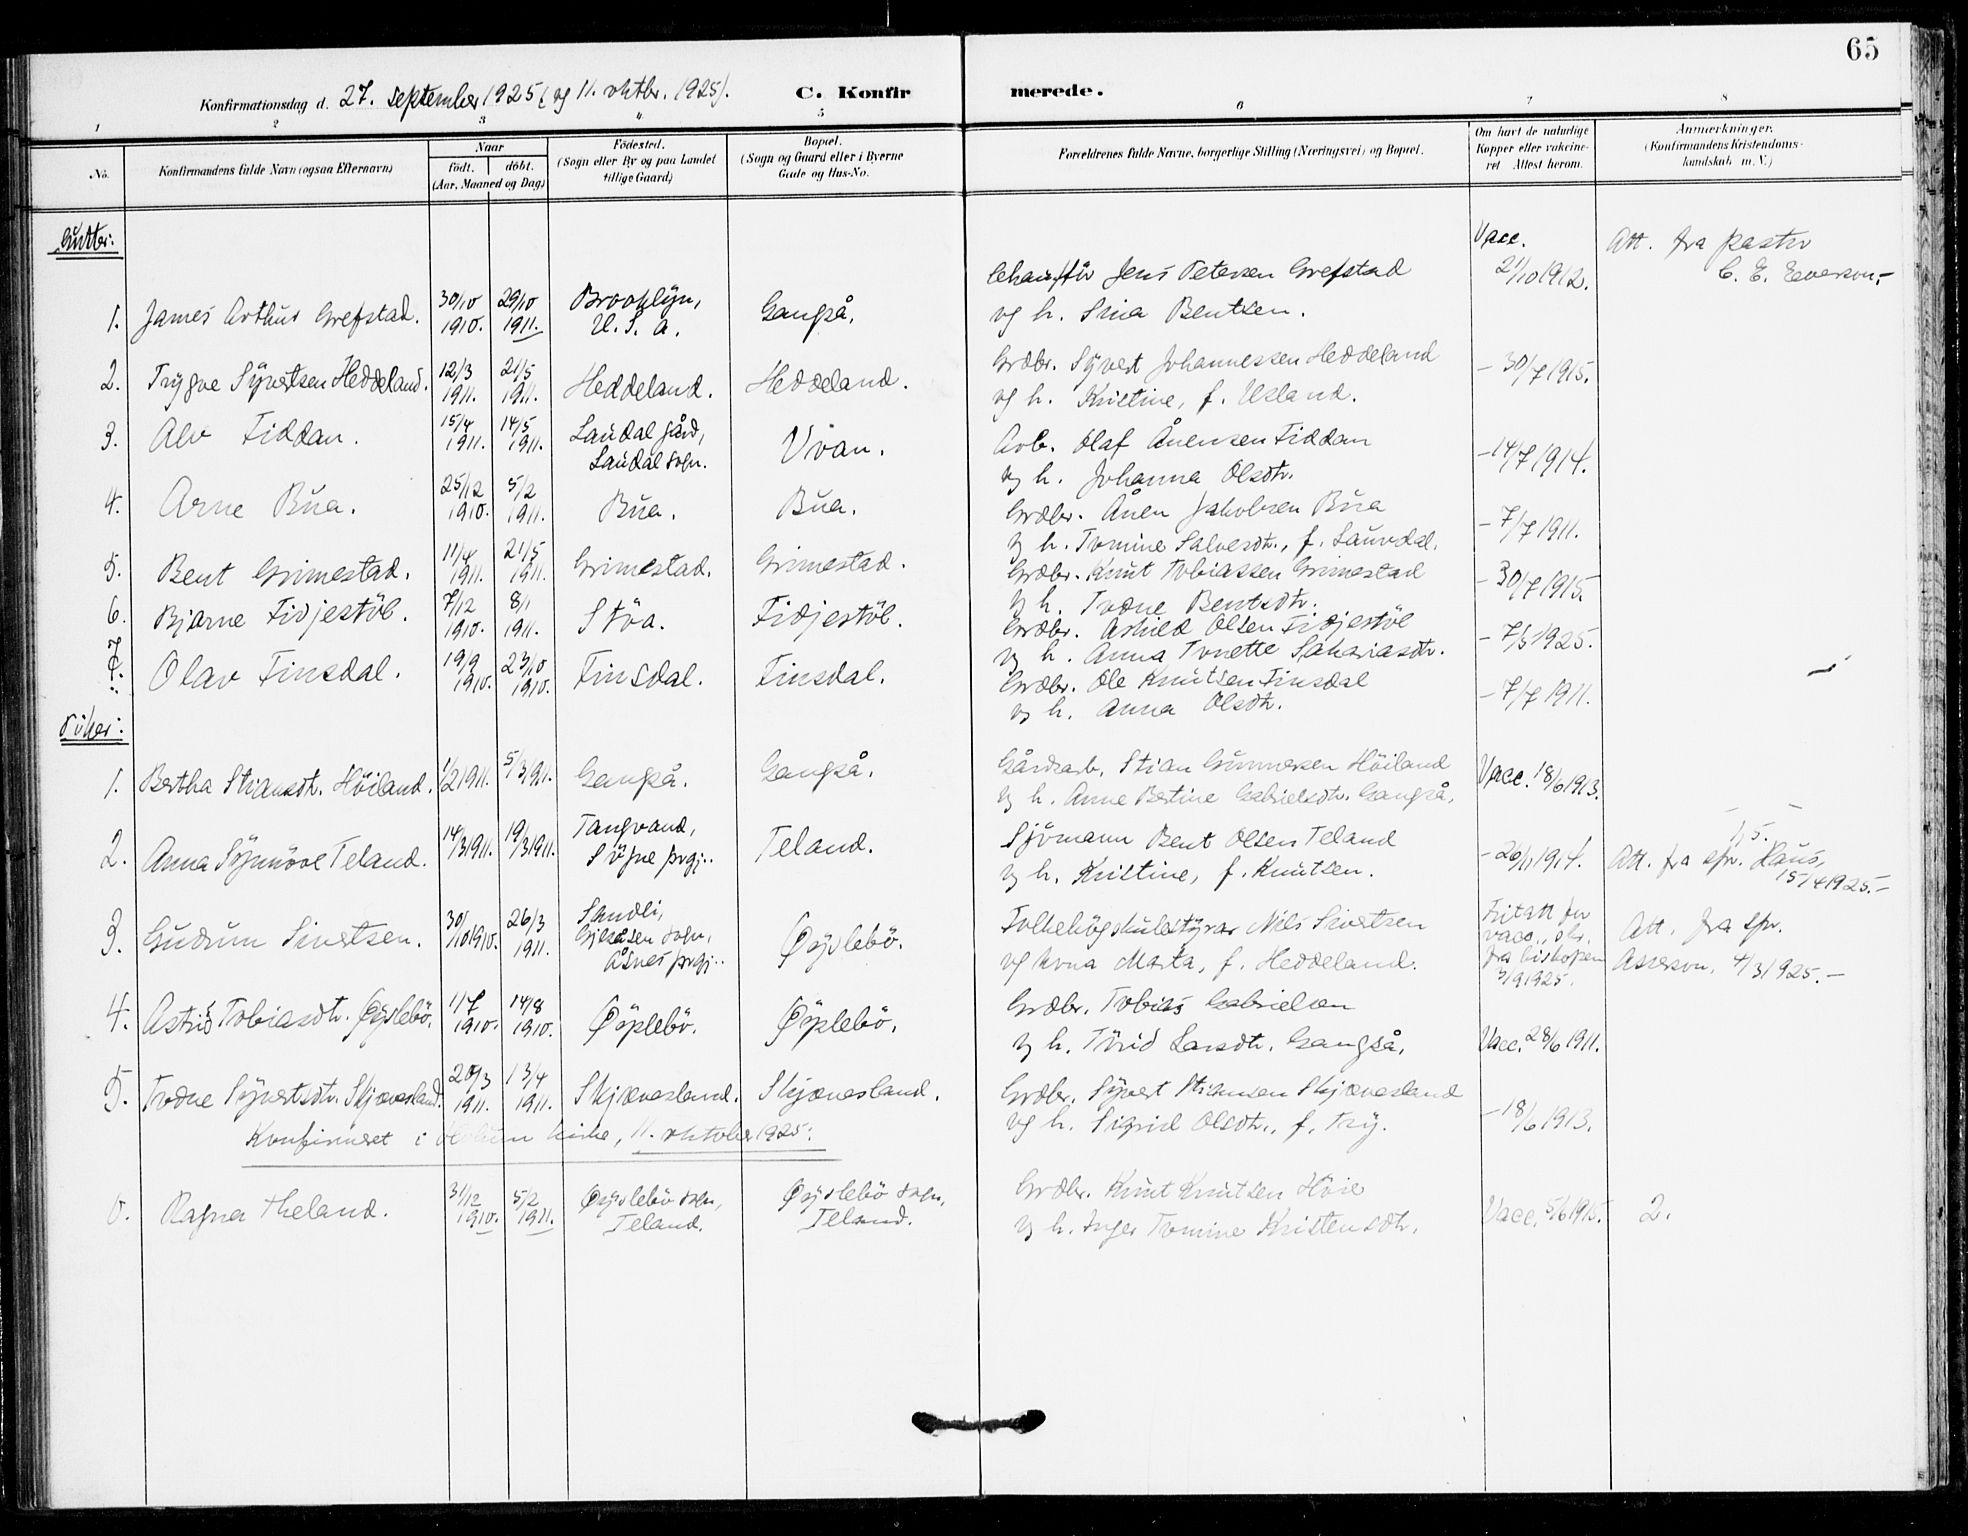 65
Konfirmationsdag d. 27. september 1925 (og 11. oktbr. 1925).
C. Konfirmerede.
1 2 3 4 5 6 7 8
No.
Konfirmandens fulde Navn (ogsaa Efternavn)
Naar
født. døbt.
(Aar, Maaned og Dag)
Fødested.
(Sogn eller By og paa Landet
tillige Gaard)
Bopæl.
(Sogn og Gaard eller i Byerne
Gade og Hus-No.
Forældrenes fulde Navne, borgerlige Stilling (Næringsvei) og Bopæl.
Om havt de naturlige
Kopper eller vakcine-
ret Attest herom.
Anmærkninger.
(Konfirmandens Kristendoms-
kundskab m. V.)
Gutter:
1. James Arthur Grefstad. 30/10 1910. 29/10 1911. Brooklyn, U. S. A. Gangså.
Chauffør Jens Petersen Grefstad
og h. Sina Bentsen.
Vacc. 21/10 1912.
Att. fra pastor
C. E. Everson.-
2. Trygve Syvertsen Heddeland. 12/3 1911. 21/5 1911. Heddeland. Heddeland.
Grdbr. Syvert Johannessen Heddeland
og h. Kristine, f. Usland.
- 30/7 1915.
3. Alv Fiddan. 15/4 1911. 14/5 1911. Laudal gård, Laudal sogn. Vvan.
Arb. Olaf Ånensen Fiddan
og h. Johanna Olsdtr.
- 14/7 1914.
4. Arne Bua. 25/12 1910. 5/2 1911. Bua. Bua.
Grdbr. Ånen Jakobsen Bua
og h. Tomine Salvesdtr., f. Lauvdal.
- 7/7 1911.
5. Bent Grimestad. 11/4 1911. 21/5 1911. Grimestad. Grimestad.
Grdbr. Knut Tobiassen Grimestad
og h. Todne Bentsdtr.
- 30/7 1915.
6. Bjarne Fidjestøl. 7/12 1910. 8/1 1911. Støa. Fidjestøl.
Grdbr. Askild Olsen Fidjestøl
og h. Anna Tonette Sakariasdtr.
- 7/5 1925.
7. Olav Finsdal. 19/9 1910. 23/10 1910. Finsdal. Finsdal.
Grdbr. Ole Knutsen Finsdal
og h. Anna Olsdtr.
- 7/7 1911.
Piker:
1. Bertha Stiansdtr. Høiland. 1/2 1911. 5/3 1911. Gangså. Gangså.
Gårdsarb. Stian Gunnersen Høiland
og h. Anne Bertine Gabrielsdtr. Gangså.
Vacc. 18/6 1913.
2. Anna Synnøve Teland. 14/3 1911. 19/3 1911. Tangvand, Søgne prgj.. Teland.
Sjømann Bent Olsen Teland
og h. Kristine, f. Knutsen.
- 26/11 1914.
1,5.
Att. fra spr. Haus,
15/4 1925.-
3. Gudrun Sivertsen. 30/10 1910. 26/3 1911. Sandli, Gjesåsen sogn, Åsnes prgj.. Øyslebø.
Folkehøgskulestyrar Nils Sivertsen
og kona Marta, f. Heddeland.
Fritatt for
vacc., skr.
fra biskopen
3/9 1925.
Att. fra spr.
Asserson, 4/3 1925.-
4. Astrid Tobiasdtr. Øyslebø. 1/7 1910. 14/8 1910. Øyslebø. Øyslebø.
Grdbr. Tobias Gabrielsen
og h. Turid Larsdtr. Gangså.
Vacc. 28/6 1911.
5. Todne Syvertsdtr. Skjævesland. 20/3 1911. 13/4 1911. Skjævesland. Skjævesland.
Grdbr. Syvert Stiansen Skjævesland
og h. Sigrid Olsdtr., f. Try.
- 18/6 1913.
Konfirmeret i Holum kirke, 11. oktober 1925:
0. Ragna Theland. 31/12 1910. 5/2 1911. Øyslebø sogn, Teland. Øyslebø sogn, Teland.
Grdbr. Knut Knutsen Høie
og h. Inger Tomine Kristensdtr.
Vacc. 5/6 1915.
2.